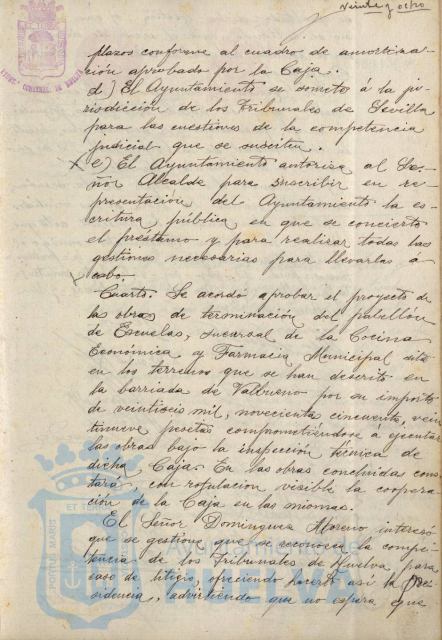 Veinte y ocho
plazos conforme al cuadro de amortiza-
ción aprobado por la Caja.
d) El Ayuntamiento se somete á la ju-
risdicción de los Tribunales de Sevilla
para las cuestiones de la competencia
judicial que se susciten.
e) El Ayuntamiento autoriza al Se-
ñor Alcalde para suscribir en re-
presentación del Ayuntamiento la es-
critura pública en que se concierte
el préstamo y para realizar todas las
gestiones necesarias para llevarlas á
cabo.
Cuarto. Se acordó aprobar el proyecto de
las obras de terminación del pabellón
de Escuelas, sucursal de la Cocina
Económica y Farmacia Municipal sito
en los terrenos que se han descrito en
la barriada de Valbueno por su importe
de veintiseis mil, novecienta cincuenta, vein
tinueve pesetas comprometiéndose á ejecutar
las obras bajo la inspección técnica de
dicha Caja. En las obras concluidas cons-
tará, con rotulacion visible la coopera-
ción de la Caja en las mismas.
El Señor Dominguez Moreno interesó
que se gestione que se reconozca la compe-
tencia de los Tribunales de Huelva para
caso de litigio, ofreciendo hacerlo así la Pre-
sidencia, advirtiendo que no espera que
PORTUS MARIS ET TERRAE
Ayuntamiento de
HUELVA